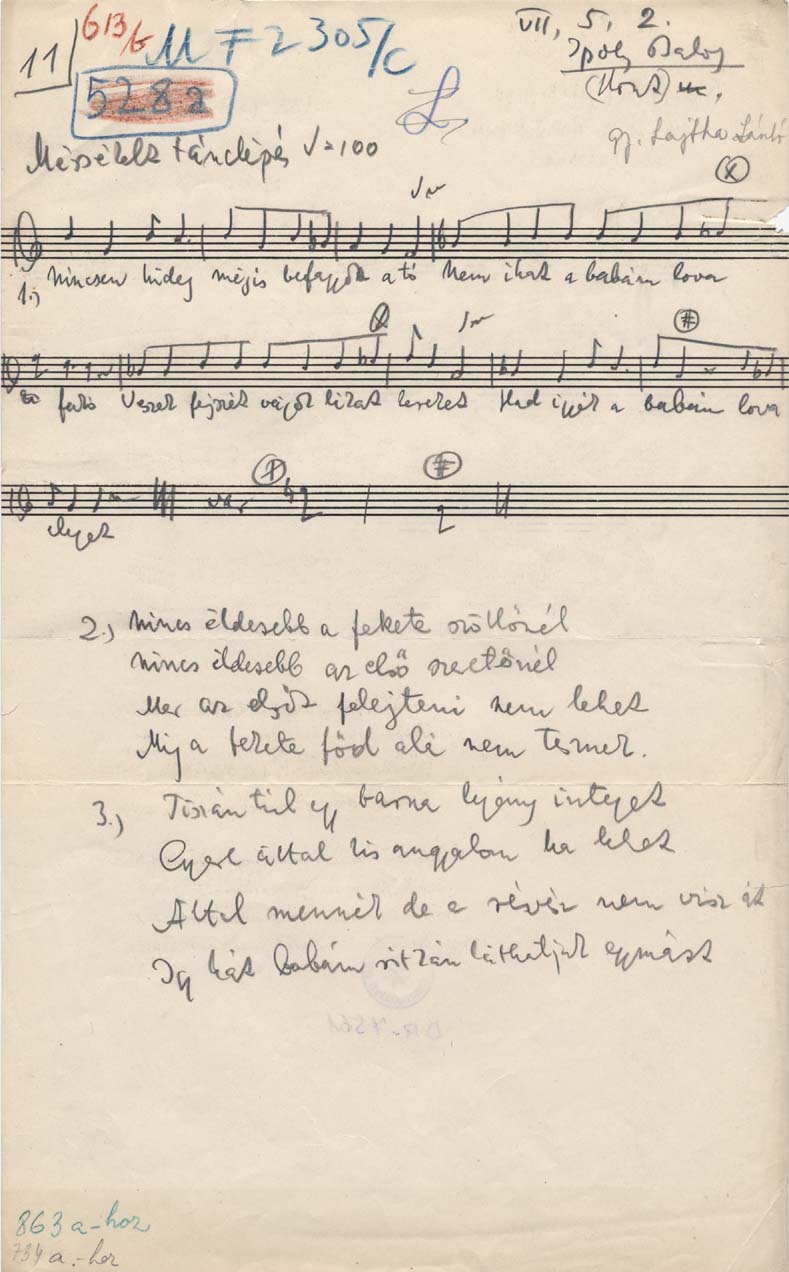 11
613/b
MF 2305/c
VII, 5, 2.
Ipoly Balog
(Hont) m.
5282
gy. Lajtha László
Mérsékelt tánclépés ♩=100
1.) Nincsen hideg mégis befagyott a tó Nem ihat a babám lova
Veszek fejszét vágok líkat leveket Had igyék a babám lova
eleget
var
2.) Nincs éldesebb a fekete szöllőnél
Nincs éldesebb az első szeretőnél
Mer az elsőt felejteni nem lehet
Míg a fekete föd alá nem tesznek.
3.) Tiszán túl egy barna lyány integet
Gyere által kis angyalom ha lehet
Által mennék de a révész nem visz át
Így hát babám ritkán láthatjuk egymást
863 a-hoz
734 a.-hoz